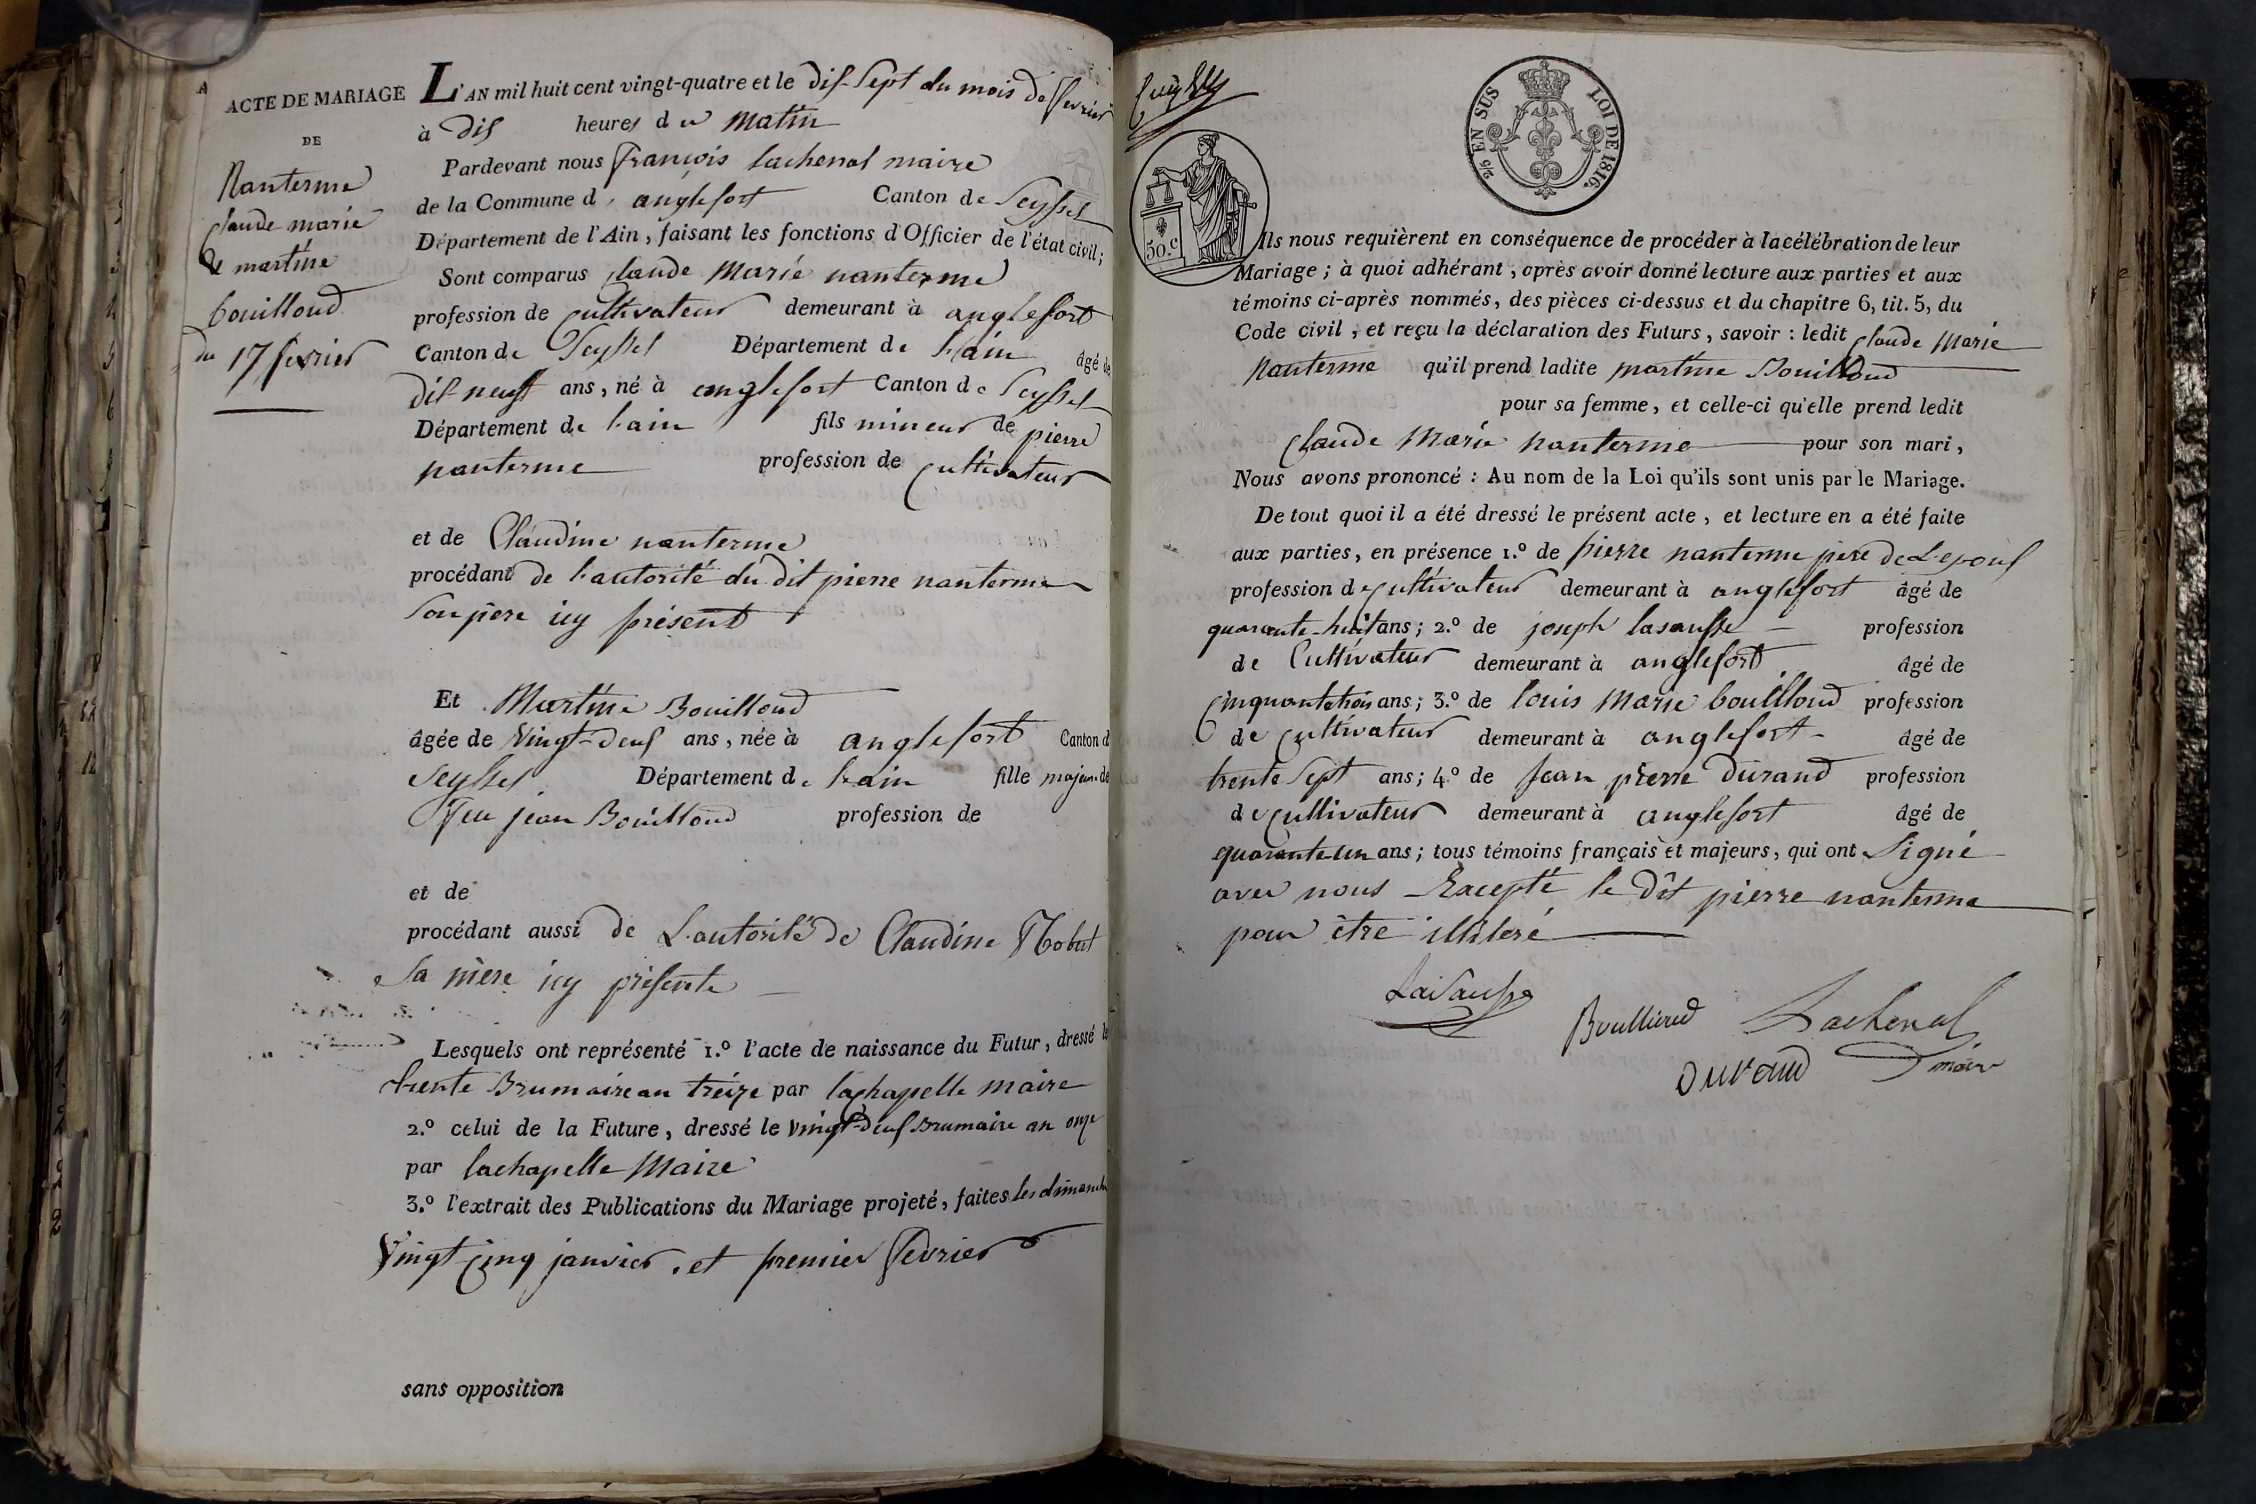 ACTE DE MARIAGE
DE
Nanterme
Claude marie
& martine
bouilloud
du 17 fevrier
L'AN mil huit cent vingt-quatre et le dis-Sept du mois de fevrier
à dis heures du Matin
Pardevant nous françois lachenal maire
de la Commune d'anglefort Canton de Seyssel
Département de l'Ain, faisant les fonctions d'Officier de l'état civil;
Sont comparus Claude Marie nanterme
profession de Cultivateur demeurant à anglefort
Canton de Seyssel Département de l'ain âgé de
dis neuf ans, né à anglefort Canton de Seyssel
Département de l'ain fils mineur de pierre
nanterme profession de Cultivateur
et de Claudine nanterme
procédant de l'autorité du dit pierre nanterme
Son pere icy présent
Et Martine Bouilloud
âgée de Vingt-deus ans, née à anglefort Canton d
Seyssel Département de l'ain fille majeure de
feu jean Bouilloud profession de
et de
procédant aussi de L'autorité de Claudine
Sa mère icy présente
Lesquels ont représenté 1.º l'acte de naissance du Futur, dressé le
trente Brumaire an treize par lachapelle maire
2.º celui de la Future, dressé le vingt-deus Brumaire an onze
par lachapelle Maire
3.º l'extrait des Publications du Mariage projeté, faites les dimanches
Vingt Cinq janvier, et premier fevrier
sans opposition
2/5 EN SUS
LOI DE 1816.
50.c
Ils nous requièrent en conséquence de procéder à la célébration de leur
Mariage; à quoi adhérant, après avoir donné lecture aux parties et aux
témoins ci-après nommés, des pièces ci-dessus et du chapitre 6, tit. 5, du
Code civil, et reçu la déclaration des Futurs, savoir: ledit Claude Marie
Nanterme qu'il prend ladite martine Bouilloud
pour sa femme, et celle-ci qu'elle prend ledit
Claude Marie nanterme pour son mari,
Nous avons prononcé: Au nom de la Loi qu'ils sont unis par le Mariage.
De tout quoi il a été dressé le présent acte, et lecture en a été faite
aux parties, en présence 1.º de pierre nanterme pere de L'epous
profession de Cultivateur demeurant à anglefort âgé de
quarante-huit ans; 2.º de joseph lasausse profession
de Cultivateur demeurant à anglefort âgé de
Cinquante trois ans; 3.º de louis Marie bouilloud profession
de Cultivateur demeurant à anglefort âgé de
trente Sept ans; 4.º de Jean pierre durand profession
de Cultivateur demeurant à anglefort âgé de
quarante un ans; tous témoins français et majeurs, qui ont Signé
avec nous Excepté le dit pierre nanterme
pour être illiteré
LaSausse
Boullioud Lachenal
Durand maire